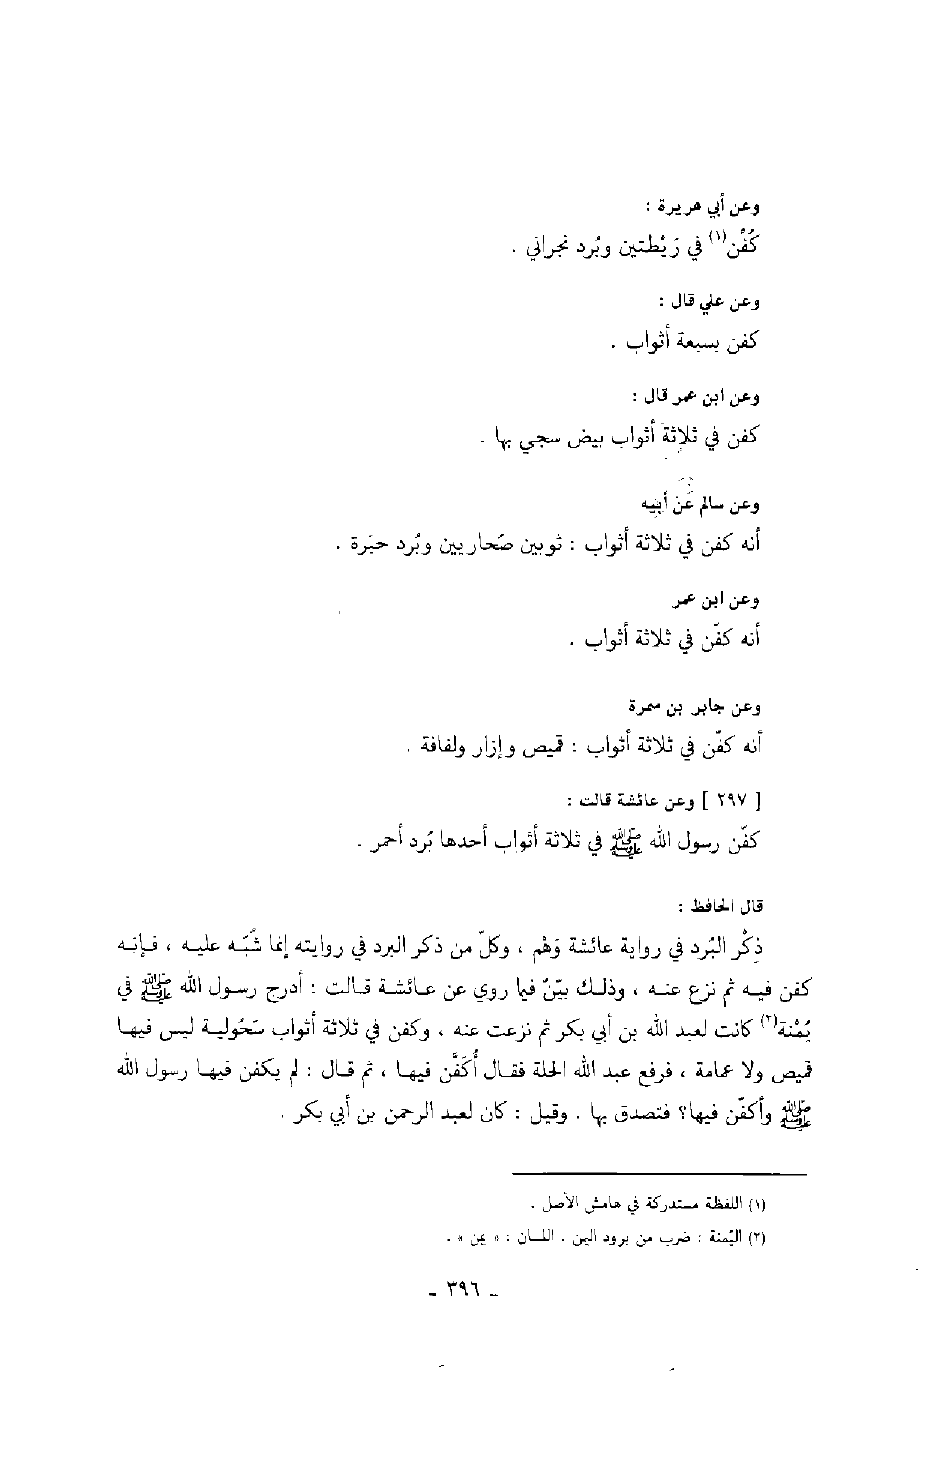 وعن أبي هريرة :
كُفّن(١) في رَيْطتين وبُرد نجراني .
وعن علي قال :
كفن بسبعة أثواب .
وعن ابن عمر قال :
كفن في ثلاثة أثواب بيض سجي بها .
وعن سالم عَن أبيه
أنه كفن في ثلاثة أثواب : ثوبين صَحاريين وبُرد حبَرة .
وعن ابن عمر
أنه كفّن في ثلاثة أثواب .
وعن جابر بن سمرة
أنه كفّن في ثلاثة أثواب : قميص وإزار ولفافة .
[ ٢٩٧ ] وعن عائشة قالت :
كفّن رسول الله ﷺ في ثلاثة أثواب أحدها بُرد أحمر .
قال الحافظ :
ذِكْر البُرد في رواية عائشة وَهْم ، وكلّ من ذكر البرد في روايته إنما شُبّه عليه ، فإنه
كفن فيه ثم نزع عنه ، وذلك بيّنٌ فيما روي عن عائشة قالت : أدرج رسول الله ﷺ في
يُمْنة(٢) كانت لعبد الله بن أبي بكر ثم نزعت عنه ، وكفن في ثلاثة أثواب سَحُولية ليس فيها
قميص ولا عمامة ، فرفع عبد الله الحلة فقال أُكَفَّن فيها ، ثم قال : لم يكفن فيها رسول الله
ﷺ وأكفّن فيها؟ فتصدق بها . وقيل : كان لعبد الرحمن بن أبي بكر .
(١) اللفظة مستدركة في هامش الأصل .
(٢) اليُمنة : ضرب من برود اليمن . اللسان : « يمن » .
- ٣٩٦ -